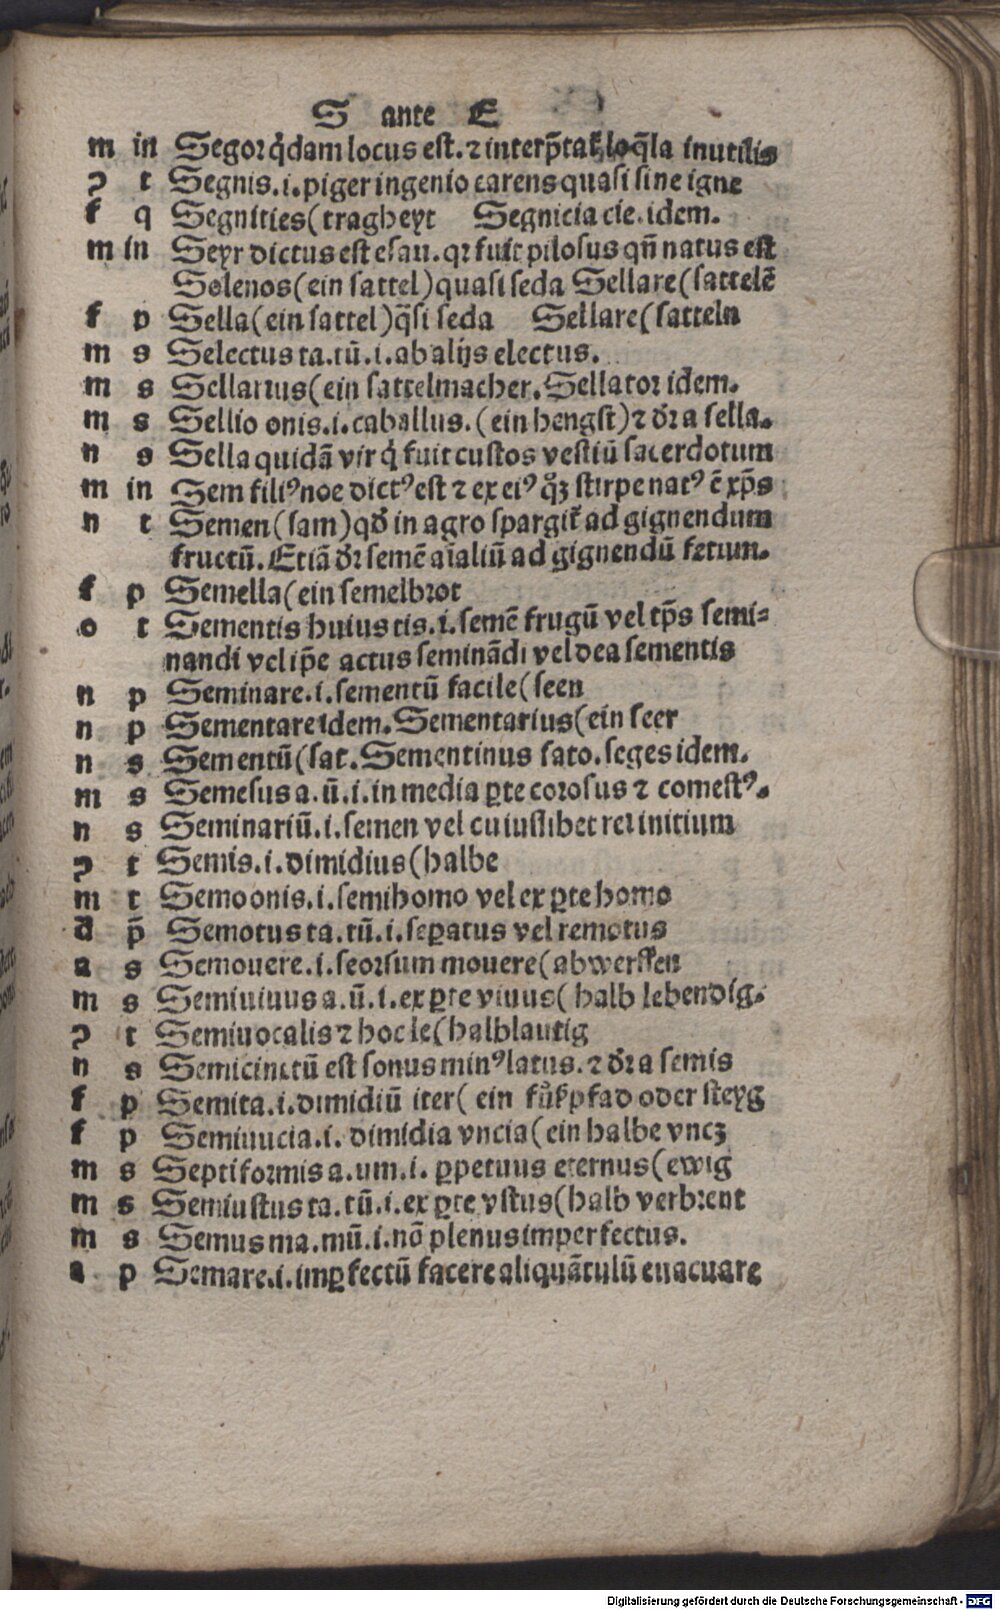 S ante E
m in Segor q̃dam locus est. ⁊ interp̃tat᷑ loq̃la inutilis
ꝯ t Segnis .i. piger ingenio carens quasi sine igne
f q Segnities (tragheyt Segnicia cie. idem.
m in Seyr dictus est esau. qꝛ fuit pilosus qñ natus est
Solenos (ein sattel) quasi seda Sellare (sattelē
f p Sella (ein sattel) q̃si seda Sellare (satteln
m s Selectus ta. tū .i. ab alijs electus.
m s Sellarius (ein sattelmacher. Sellator idem.
m s Sellio onis .i. caballus. (ein hengst) ⁊ dr̃ a sella.
n s Sella quidā vir q̇ fuit custos vestiū sacerdotum
m in Sem filiꝰ noe dictꝰ est ⁊ ex eiꝰ qͦꝫ stirpe natꝰ ē xp̃s
n t Semen (sam) qđ in agro spargit᷑ ad gignendum
fructū. Etiā dr̃ semē aĩaliū ad gignendū fetum.
f p Semella (ein semelbrot
o t Sementis huius tis .i. semē frugū vel tp̃s semi⸗
nandi vel ip̃e actus seminādi vel dea sementis
n p Seminare .i. sementū facile (seen
n p Sementare idem. Sementarius (ein seer
n s Sementū (sat. Sementinus sato. seges idem.
m s Semesus a. ū .i. in media ꝑte corosus ⁊ comestꝰ.
n s Seminariū .i. semen vel cuiuslibet rei initium
ꝯ t Semis .i. dimidius (halbe
m t Semo onis .i. semihomo vel ex ꝑte homo
đ p̄ Semotus ta. tū .i. seꝑatus vel remotus
a s Semouere .i. seorsum mouere (abwerffen
m s Semiuiuus a. ū .i. ex ꝑte viuus (halb lebendig.
ꝯ t Semiuocalis ⁊ hoc le (halblautig
n s Semicinctū est sonus minꝰ latus. ⁊ dr̃ a semis
f p Semita .i. dimidiū iter (ein fůßpfad oder steyg
f p Semiuucia .i. dimidia vncia (ein halbe vncz
m s Septiformis a. um .i. ꝑpetuus eternus (ewig
m s Semiustus ta. tū .i. ex ꝑte vstus (halb verbrent
m s Semus ma. mū .i. nō plenus imperfectus.
a p Semare .i. imꝑfectū facere aliquātulū euacuare
Digitalisierung gefördert durch die Deutsche Forschungsgemeinschaft - DFG